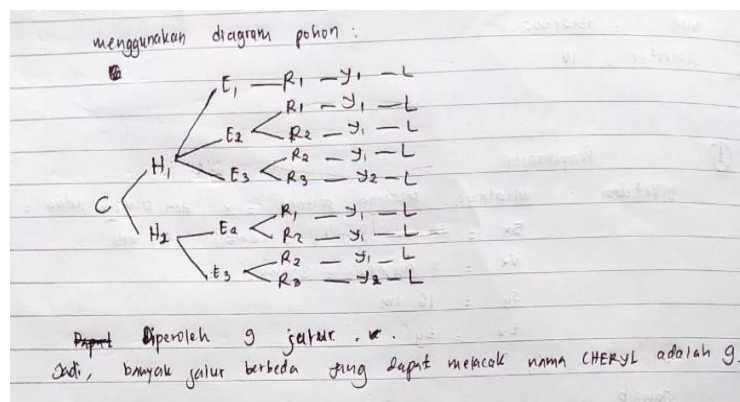 menggunakan diagram pohon :
E1 — R1 — y1 — L
R1 — y1 — L
E2 R2 — y1 — L
H1 R2 — y1 — L
E3 R3 — y2 — L
C
R1 — y1 — L
H2 E2 R2 — y1 — L
R2 — y1 — L
E3 R3 — y2 — L
Diperoleh 9 jalur.
Jadi, banyak jalur berbeda yang dapat melacak nama CHERYL adalah 9.